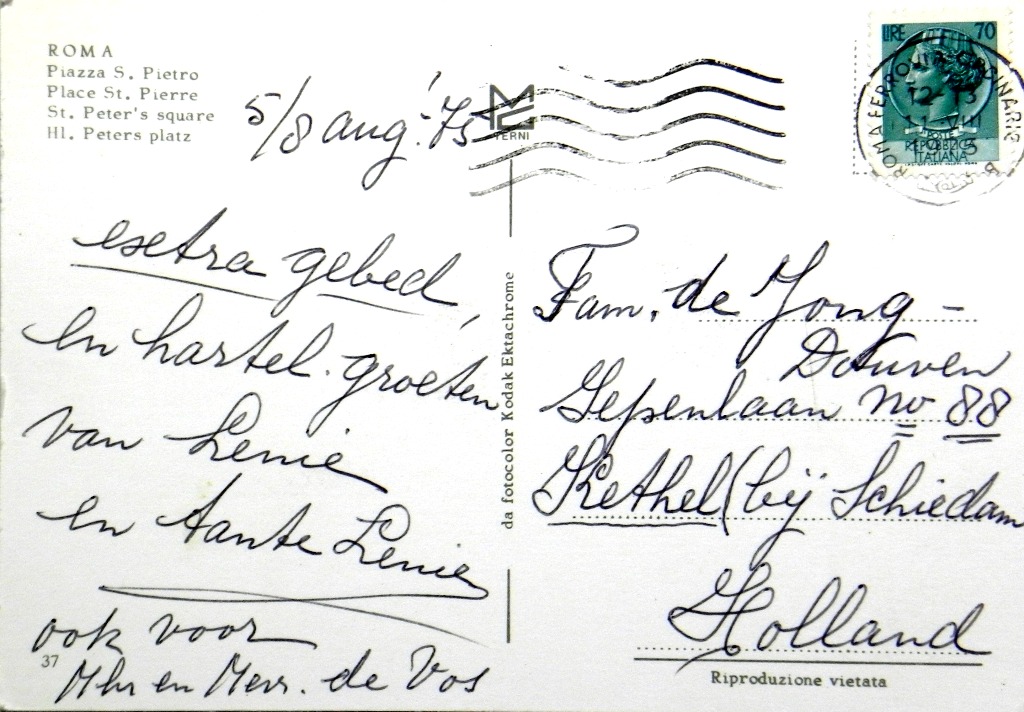 ROMA
Piazza S. Pietro
Place St. Pierre
St. Peter's square
Hl. Peters platz
5/8 aug. '75
TERNI
LIRE 70
ROMA FERROVIA
12-13
11 VIII
POSTE
REPUBBLICA
ITALIANA
esetra gebed,
en hartel. groeten
van Lenie
en tante Lenie
ook voor
Mhr en Mevr. de Vos
37
da fotocolor Kodak Ektachrome
Fam. de Jong -
Douven
Gepenlaan no 88
Kethel (bij Schiedam
Holland
Riproduzione vietata